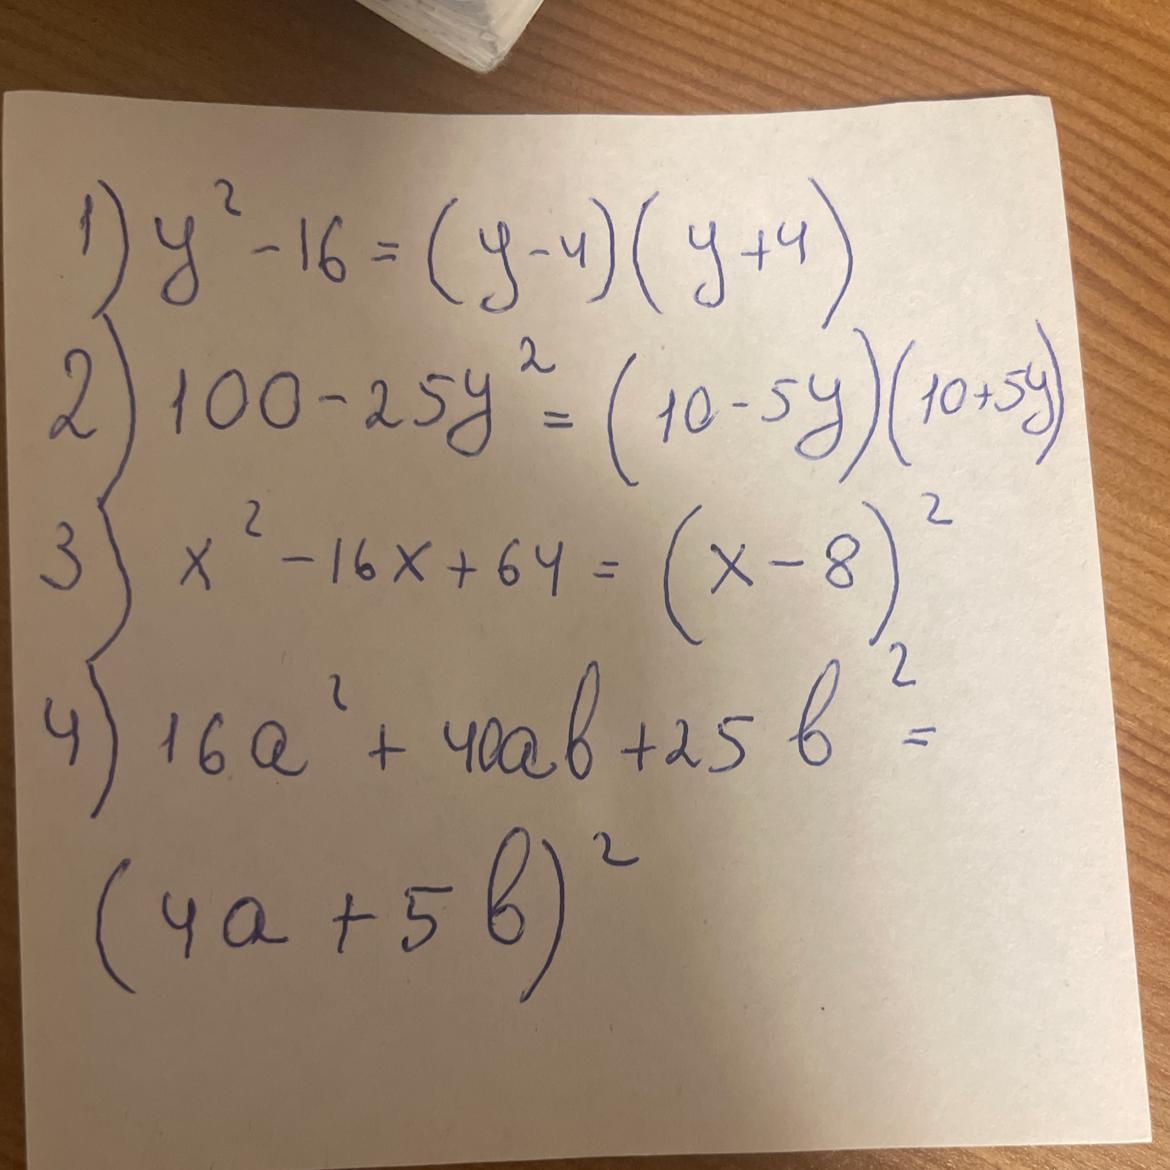 1) y² - 16 = (y - 4)(y + 4)
2) 100 - 25y² = (10 - 5y)(10 + 5y)
3) x² - 16x + 64 = (x - 8)²
4) 16a² + 40ab + 25b² =
(4a + 5b)²